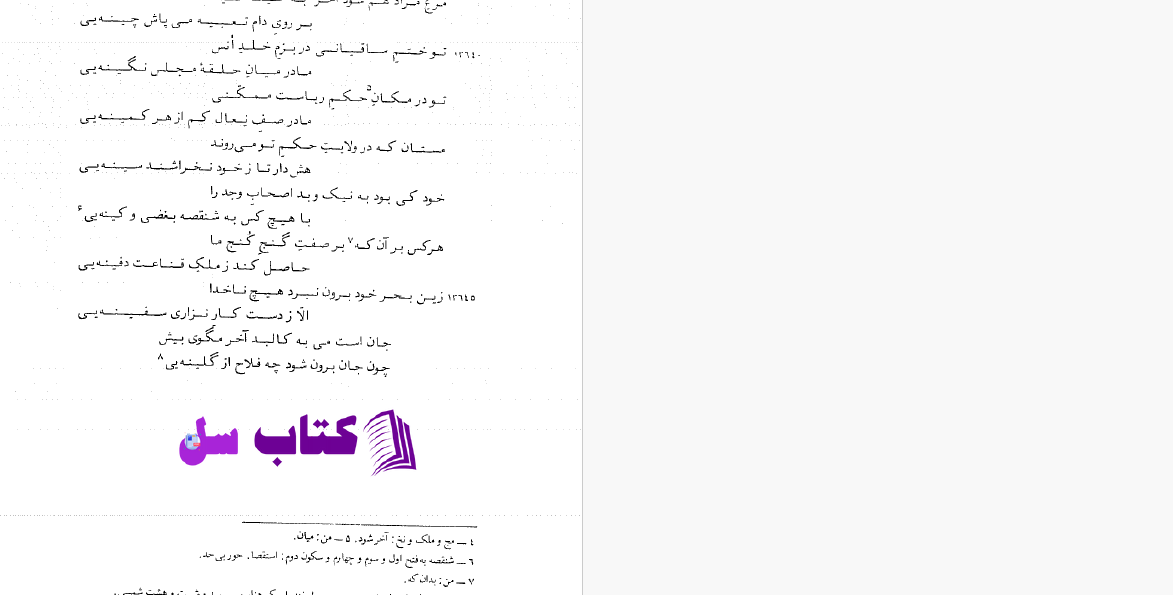 مرغ مراد هم شود آخر به
بر روی دام تعبیه می پاش چینه‌یی
۱۳۶۴۰ تو ختمِ ساقیانی در بزمِ خلدِ اُنس
مادر میانِ حلقهٔ مجلس نگینه‌یی
تو در مکانِ۵ حکمِ ریاست ممکّنی
مادر صفِ نِعال کم از هر کمینه‌یی
مستان که در ولایتِ حکمِ تو می‌روند
هش دار تا ز خود نخراشند سینه‌یی
خود کی بود به نیک و بد اصحابِ وجد را
با هیچ کس به شنقصه بغضی و کینه‌یی۶
هرکس بر آن که۷ بر صفتِ گنجِ کُنج ما
حاصل کند ز ملکِ قناعت دفینه‌یی
۱۳۶۴۵ زین بحر خود برون نبرد هیچ ناخدا
الّا ز دست کارِ نزاری سفینه‌یی
جان است می به کالبد آخر مگوی بیش
چون جان برون شود چه فلاح از گلینه‌یی۸
کتاب سل
۴ ــ مج و ملک و نخ: آخر شود. ۵ ــ من: میان.
۶ ــ شنقصه به‌فتح اول و سوم و چهارم و سکون دوم: استقصا. جور بی‌حد.
۷ ــ من: بدان که.